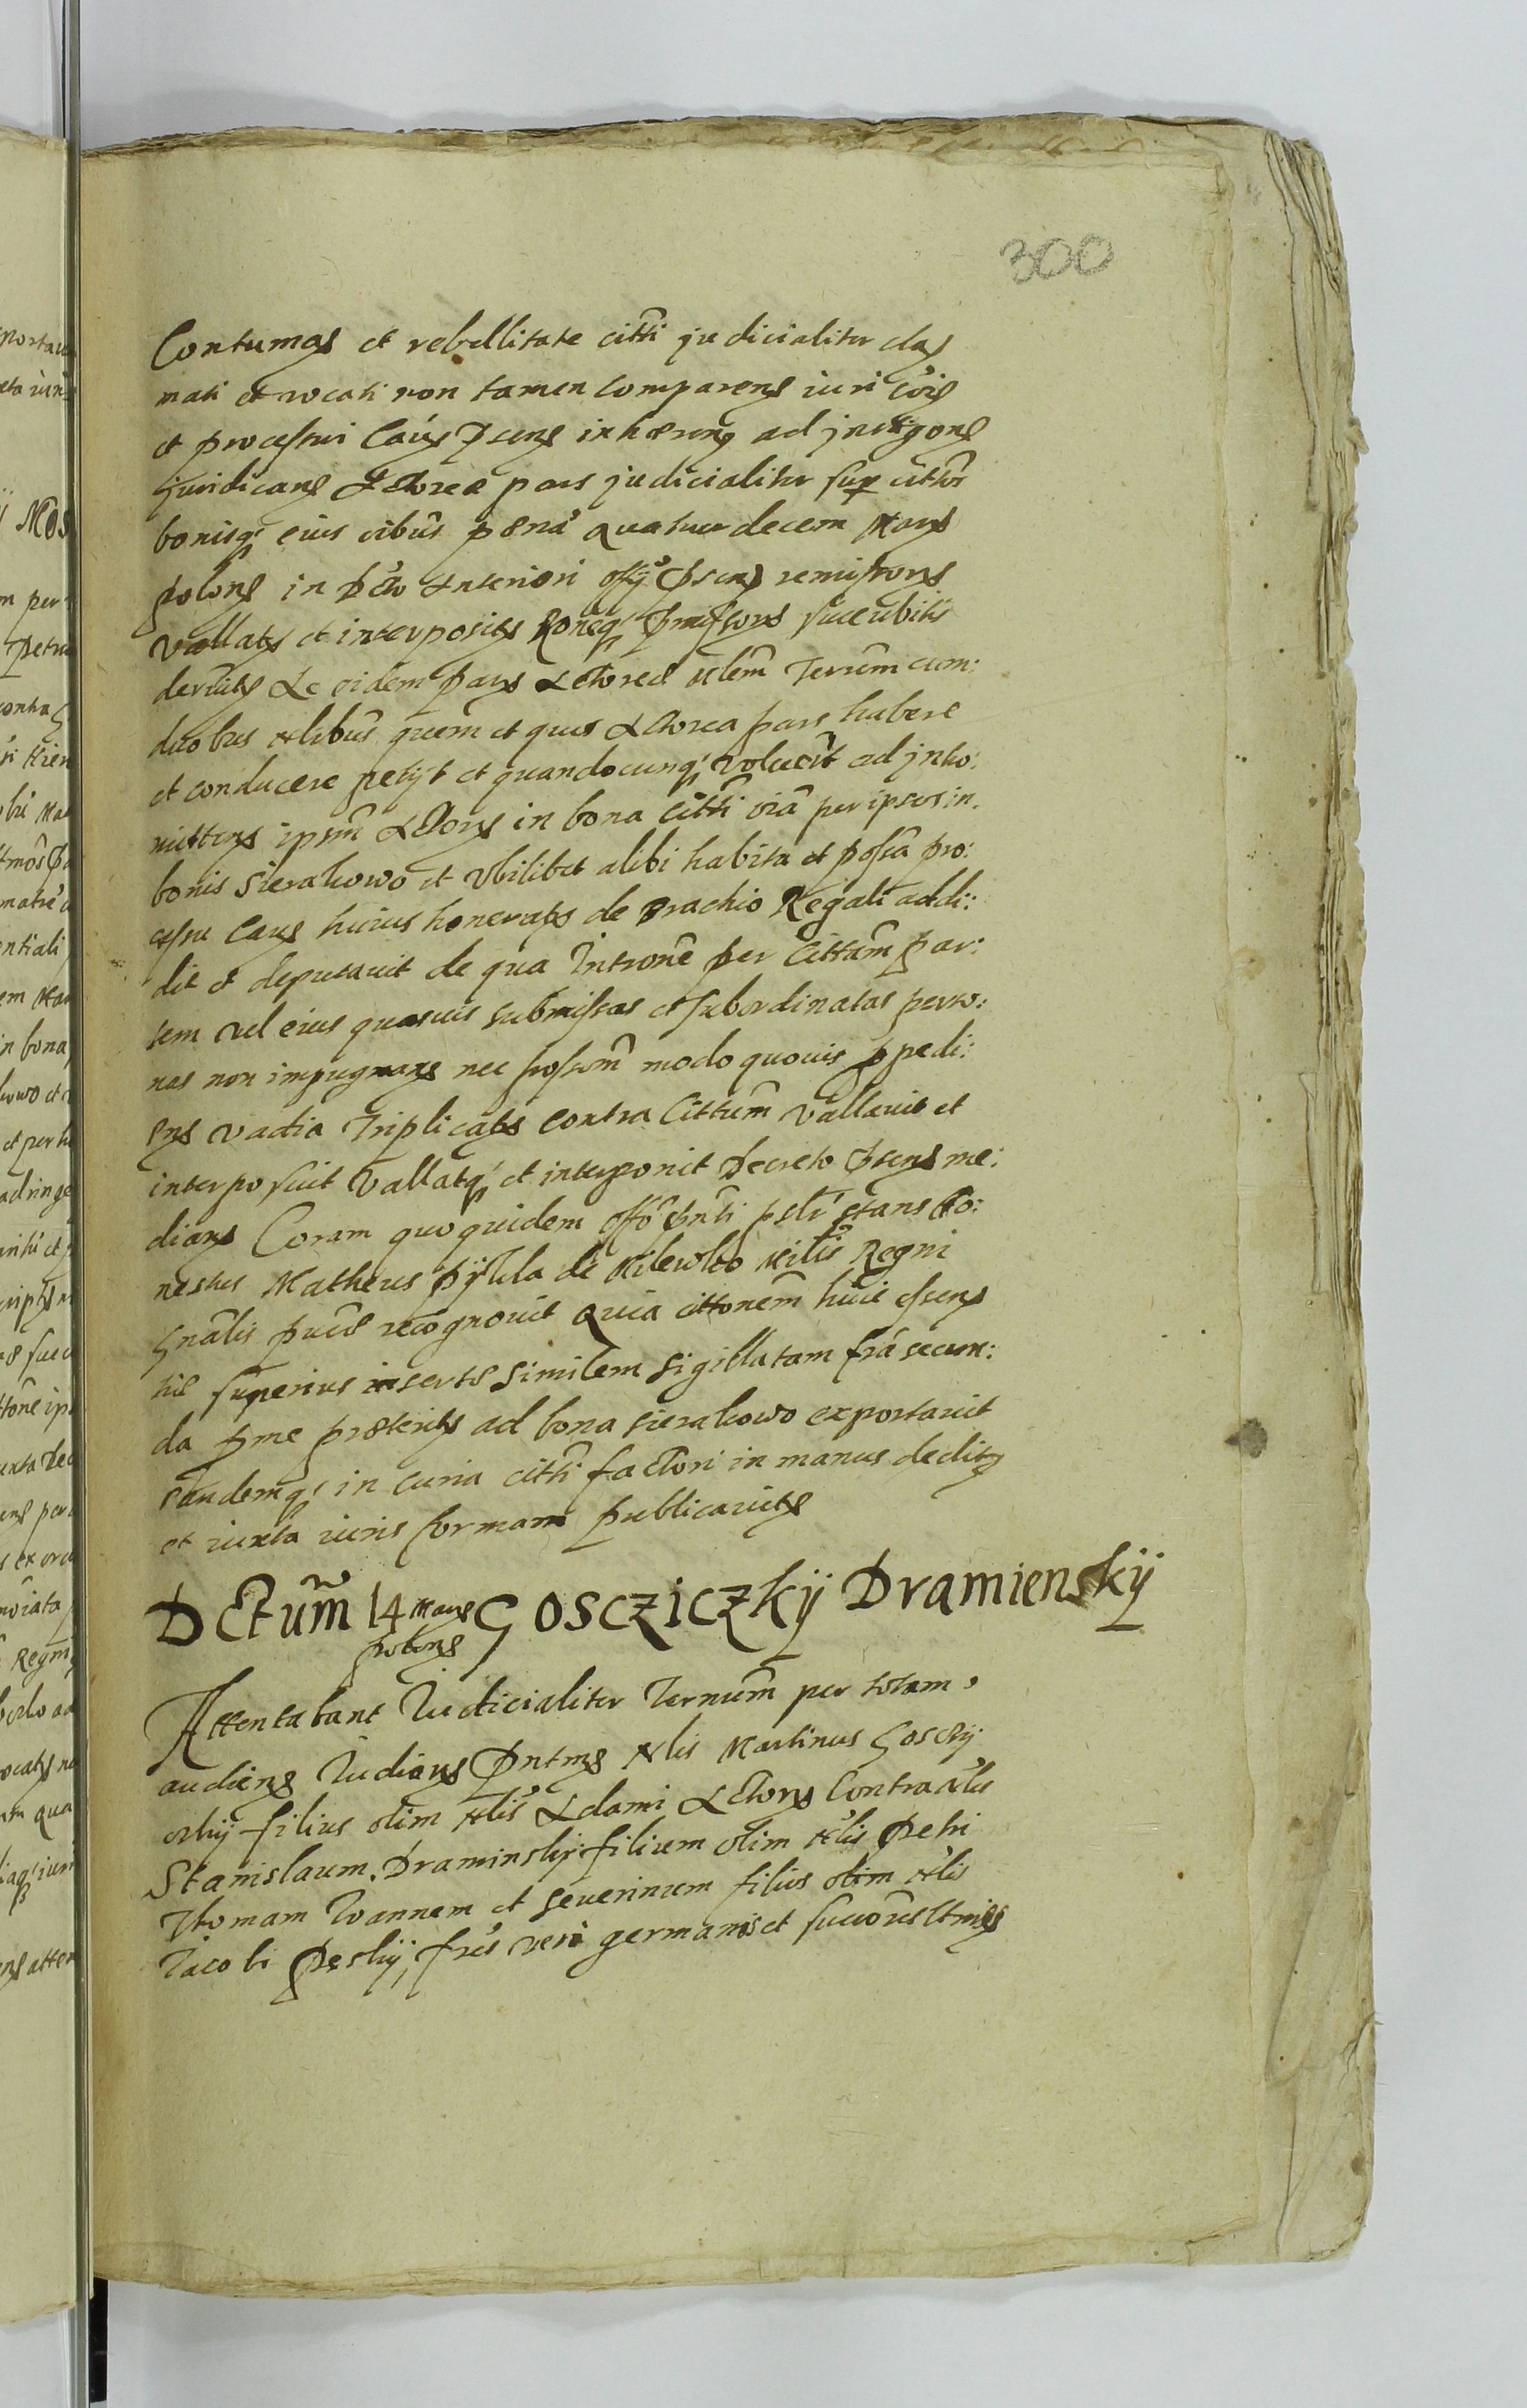 300
Contumas et rebellitate citti judicialiter clas
mati et vocati non tamen comparens iuri cois
et processui Caus psens inhærens ad instigons
juridicans Actorea pars judicialiter sup cittm
bonisq eius oibus pœna quatuordecem Mars
polons in Dcto Anteriori offy psens remissions
vallats et interposits Roneq succubitis
deruits Ac eidem pars Actoree Nlem Terrum cum:
duobus Nlibus quem et quos Actorea pars habere
et conducere petijt et quandocunq voluerit ad intro:
mittens ipsm Actors in bona Citti oia per ipsos in
bonis Sierakowo et Vbilibet alibi habita et possa pro:
cessu Caus huius honerats de Brachio Regali addi:
dit et deputauit de qua Introne per Cittam par:
tem vel eius quasuis submissas et subordinatas perso:
nas non impugnans nec possum modo quouis ppedi:
ens vadia Triplicats contra Cittum vallauit et
interposuit vallatq et interponit Decreto psens me:
dians Coram quo quidem offo pnti pslr stans Ho:
nestus Matheus Pytula de Milewko Milis Regni
Gnalis publ recognouit Quia cittonem huic essens
tis superius inserts similem sigillatam fra secun:
da pme præterits ad bona Sierakowo exportauit
eandemq in curia citti factori in manus dedits
et iuxta iuris formam publicauits
DCtum 14 Mars polons Goscziczkij Dramienskij
Attentabant Iudicialiter Ternum per totam
audiens Iudians Pntms Nlis Martinus Gosczij
czkij filius olim Nlis Adami Actors Contra Nles
Stanislaum Draminskij filium olim Nlis Petri
Thomam Ioannem et Seuerinum filios olim Nlis
Iacobi Peskij, fres veri germanos et succores ltmis